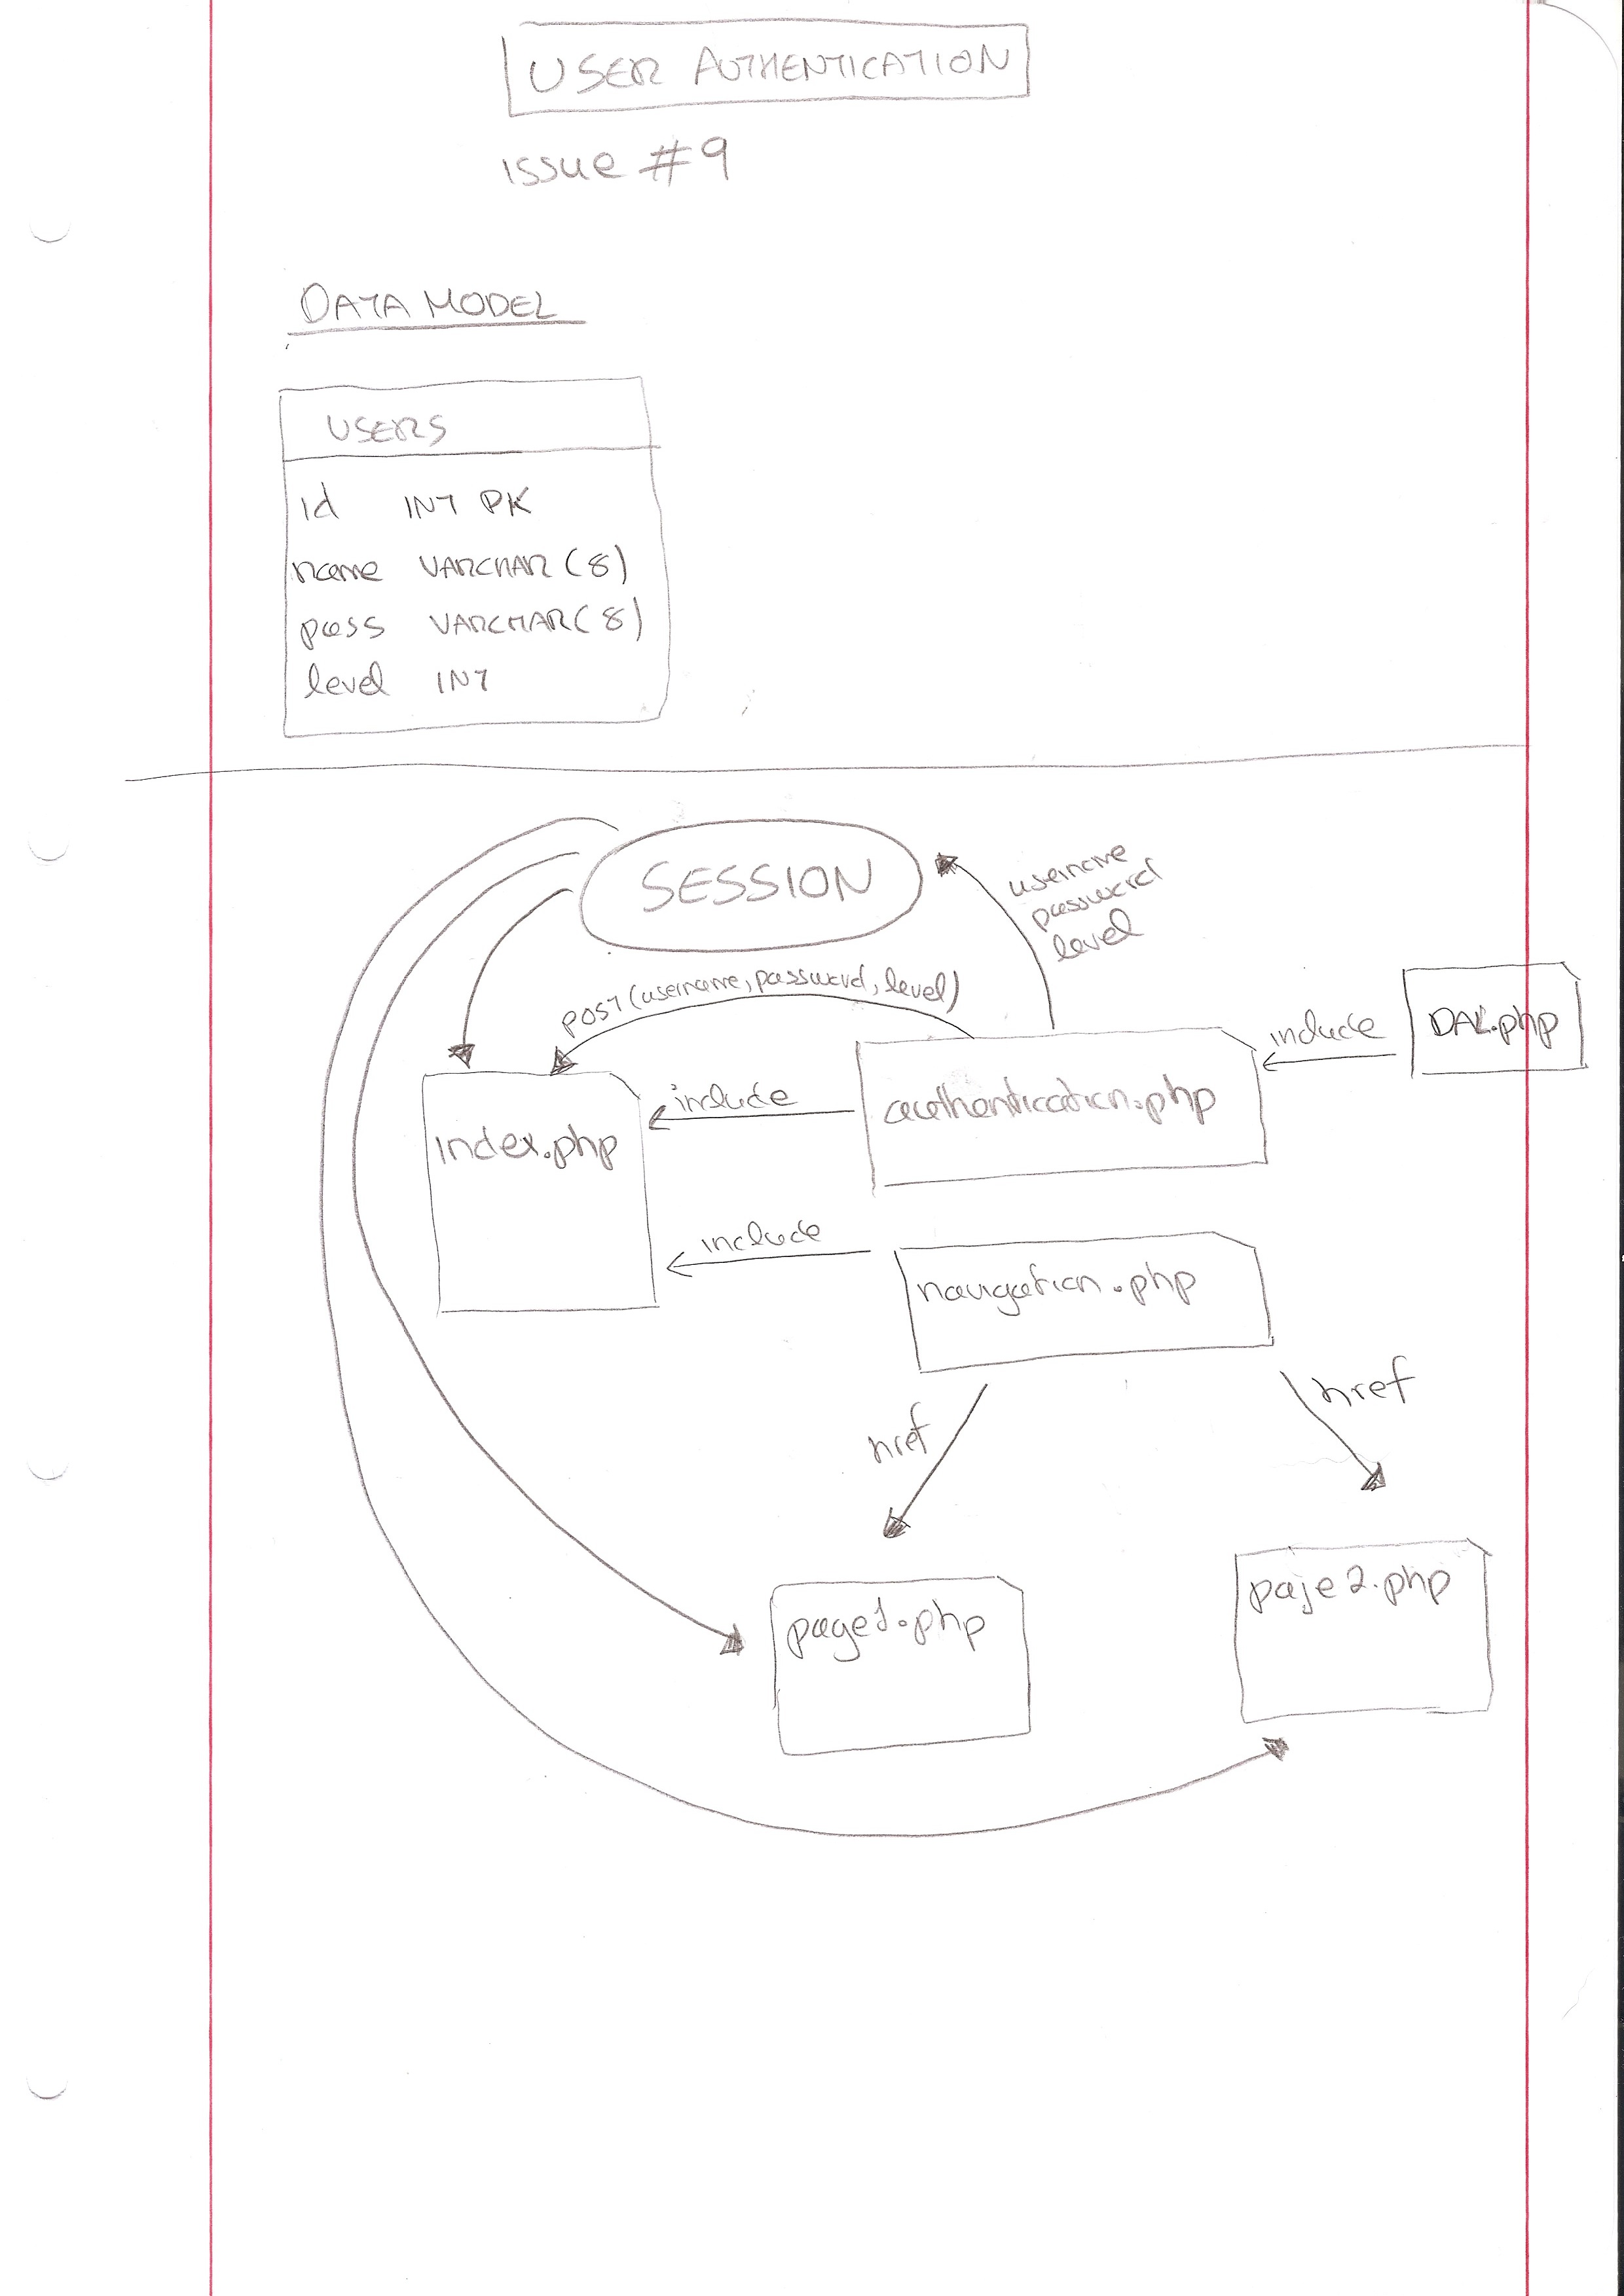 USER AUTHENTICATION
issue #9
DATA MODEL
USERS
id INT PK
name VARCHAR (8)
pass VARCHAR (8)
level INT
SESSION
username
password
level
POST (username, password, level)
include
DAL.php
include
authentication.php
index.php
include
navigation.php
href
href
page1.php
paje2.php